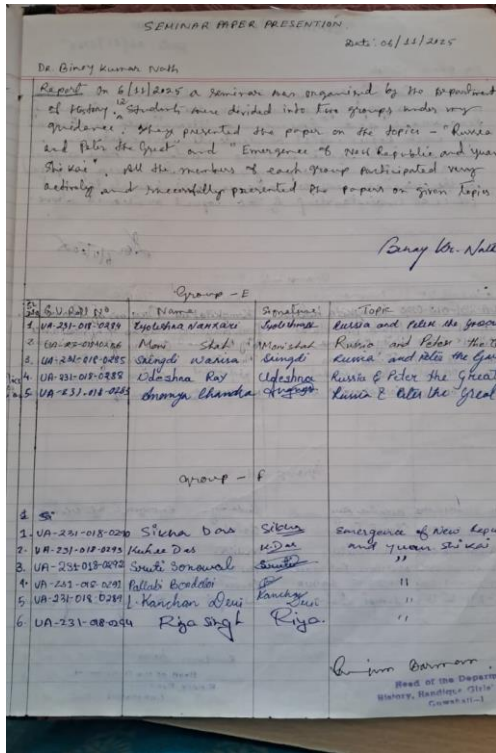 SEMINAR PAPER PRESENTION
Date: 06/11/2025
Dr. Binoy Kumar Nath
Report On 6/11/2025 a seminar was organised by the Department
of History. 12 Students were divided into two groups under my
guidance. They presented the paper on the topics - "Russia
and Peter the Great" and "Emergence of New Republic and Yuan
Shi Kai". All the members of each group participated very
actively and successfully presented the papers on given topics
Binoy Kr. Nath
Group - E
G.U. Roll No Name Signature Topic
1. UA-231-018-0284 Jyotishna Jyotishna Russia and Peter the Great
2. Moni Shah Monishah Russia and Peter the
3. UA-231-018-0285 Sringdi Narisa Sringdi Russia and Peter the
4. UA-231-018-0288 Udeshna Ray Udeshna Russia & Peter the Great
5 UA-231-018-0283 Ananya Chandra Russia & Peter the Great
Group - F
1. UA-231-018-0290 Sikha Das Sikha Emergence of New
2. UA-231-018-0293 Kuhee Das K.Das and Yuan Shi Kai
3. UA-231-018-0292 Sruti Sonowal Sruti "
4. UA-231-018-0291 Pallabi Bordoloi "
5. UA-231-018-0289 L. Kanchan Devi Kanchan Devi "
6. UA-231-018-0294 Riya Singh Riya. "
Barman
Head of the
History, Handique Girls